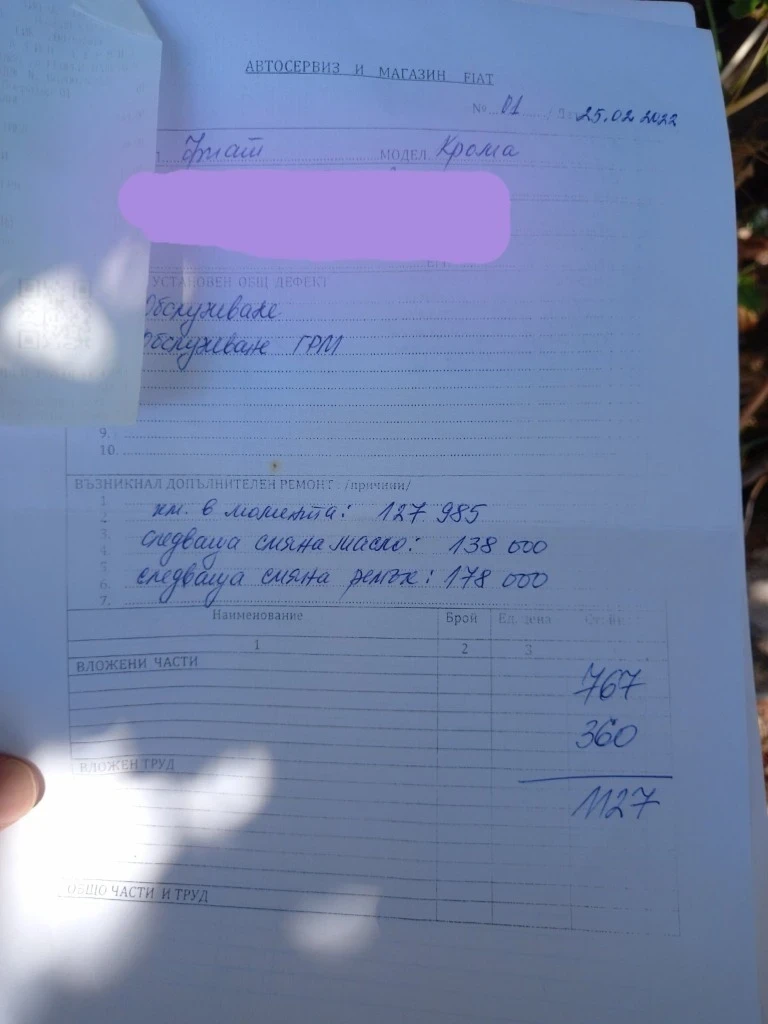 АВТОСЕРВИЗ И МАГАЗИН FIAT
№ 01 25.02.2022
Фиат МОДЕЛ Крома
УСТАНОВЕН ОБЩ ДЕФЕКТ
Обслужване
Обслужване ГРМ
9.
10.
ВЪЗНИКНАЛ ДОПЪЛНИТЕЛЕН РЕМОНТ: /причини/
1
2. км. в момента: 127 985
3.
4. следваща смяна масло: 138 000
5.
6. следваща смяна ремък: 178 000
7.
Наименование Брой Ед. цена
1 2 3
ВЛОЖЕНИ ЧАСТИ
767
360
ВЛОЖЕН ТРУД
1127
ОБЩО ЧАСТИ И ТРУД